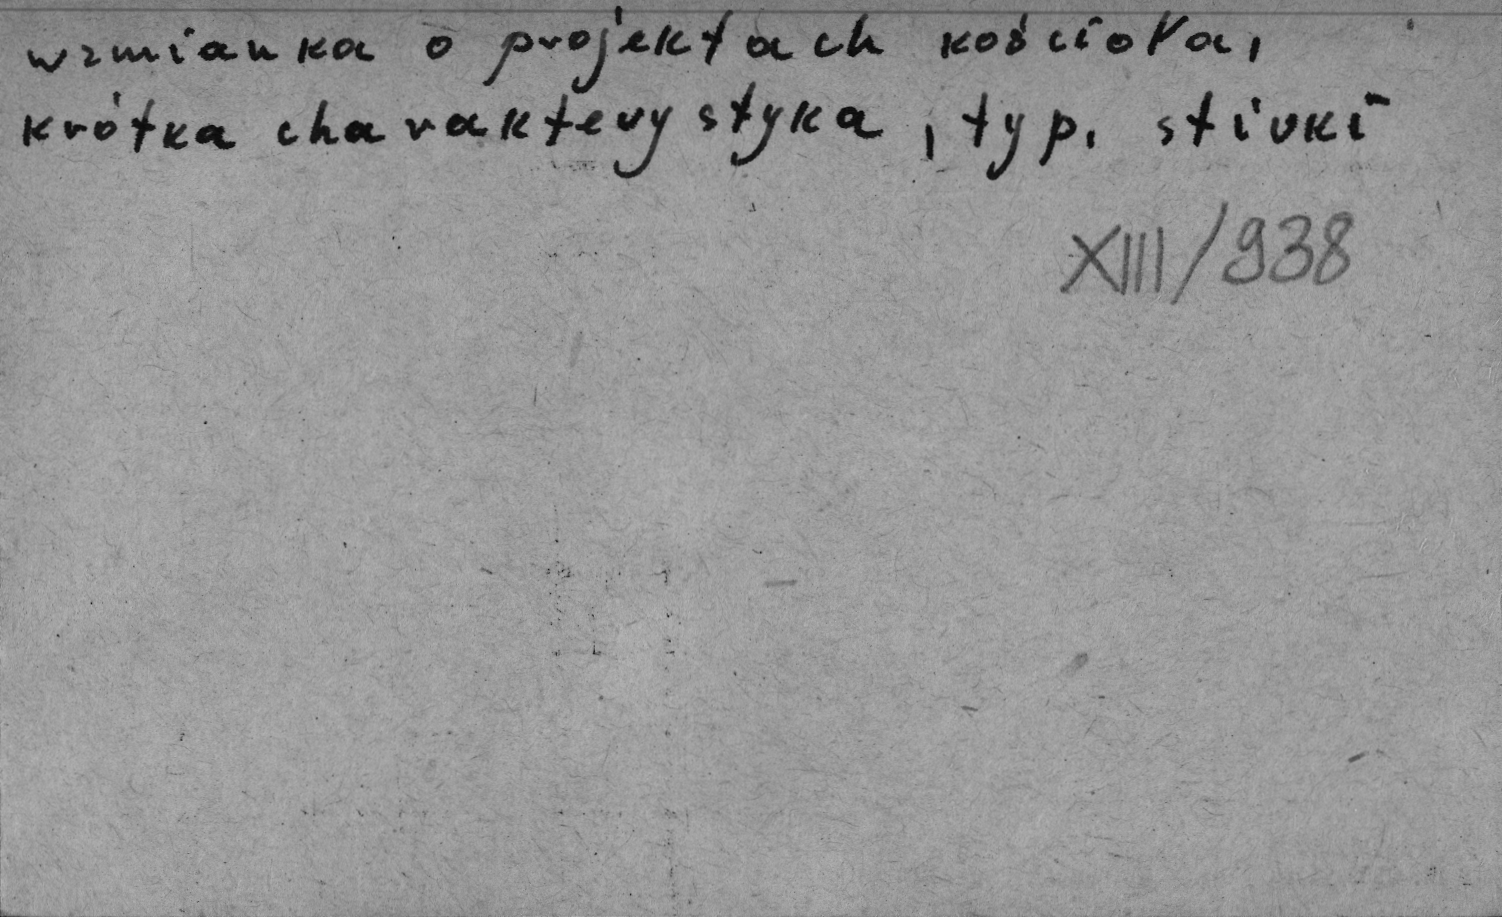 wzmianka o projektach kościoła,
krótka charakterystyka, typ. stiuki
XIII/938